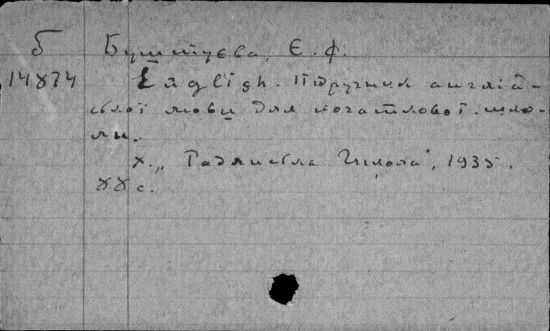 б Буштуєва, Є. Ф.
14874 English. Підручник англій-
ської мови для початкової шко-
ли.
Х. „Радянська Школа", 1935.
88 с.